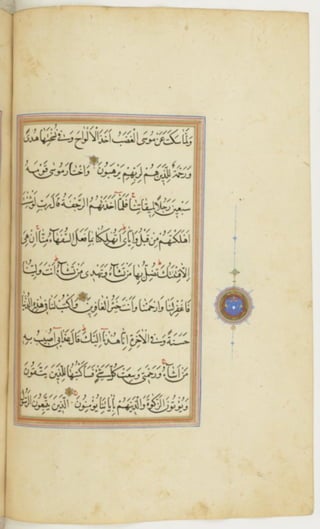 وَلَمَّا سَكَتَ عَنْ مُوسَى الْغَضَبُ اَخَذَ الْاَلْوَاحَ وَفِي نُسْخَتِهَا هُدًى
وَرَحْمَةٌ لِلَّذِينَ هُمْ لِرَبِّهِمْ يَرْهَبُونَ وَاخْتَارَ مُوسَى قَوْمَهُ
سَبْعِينَ رَجُلًا لِمِيقَاتِنَا فَلَمَّا اَخَذَتْهُمُ الرَّجْفَةُ قَالَ رَبِّ لَوْ شِئْتَ
اَهْلَكْتَهُمْ مِنْ قَبْلُ وَاِيَّايَ اَتُهْلِكُنَا بِمَا فَعَلَ السُّفَهَاءُ مِنَّا اِنْ هِيَ
اِلَّا فِتْنَتُكَ تُضِلُّ بِهَا مَنْ تَشَاءُ وَتَهْدِي مَنْ تَشَاءُ اَنْتَ وَلِيُّنَا
فَاغْفِرْ لَنَا وَارْحَمْنَا وَاَنْتَ خَيْرُ الْغَافِرِينَ وَاكْتُبْ لَنَا فِي هَذِهِ الدُّنْيَا
حَسَنَةً وَفِي الْاٰخِرَةِ اِنَّا هُدْنَا اِلَيْكَ قَالَ عَذَابِي اُصِيبُ بِهِ
مَنْ اَشَاءُ وَرَحْمَتِي وَسِعَتْ كُلَّ شَيْءٍ فَسَاَكْتُبُهَا لِلَّذِينَ يَتَّقُونَ
وَيُؤْتُونَ الزَّكٰوةَ وَالَّذِينَ هُمْ بِاٰيَاتِنَا يُؤْمِنُونَ الَّذِينَ يَتَّبِعُونَ الرَّسُولَ